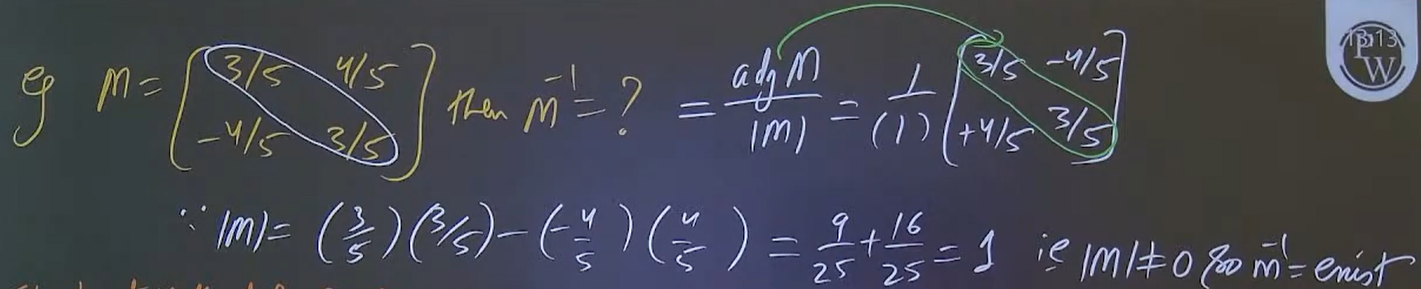 eg M = [ 3/5 4/5 -4/5 3/5 ] then M⁻¹ = ? = adj M / |M| = 1/(1) [ 3/5 -4/5 +4/5 3/5 ]
∵ |M| = (3/5)(3/5) - (-4/5)(4/5) = 9/25 + 16/25 = 1 ie |M| ≠ 0 so M⁻¹ = exist
PW